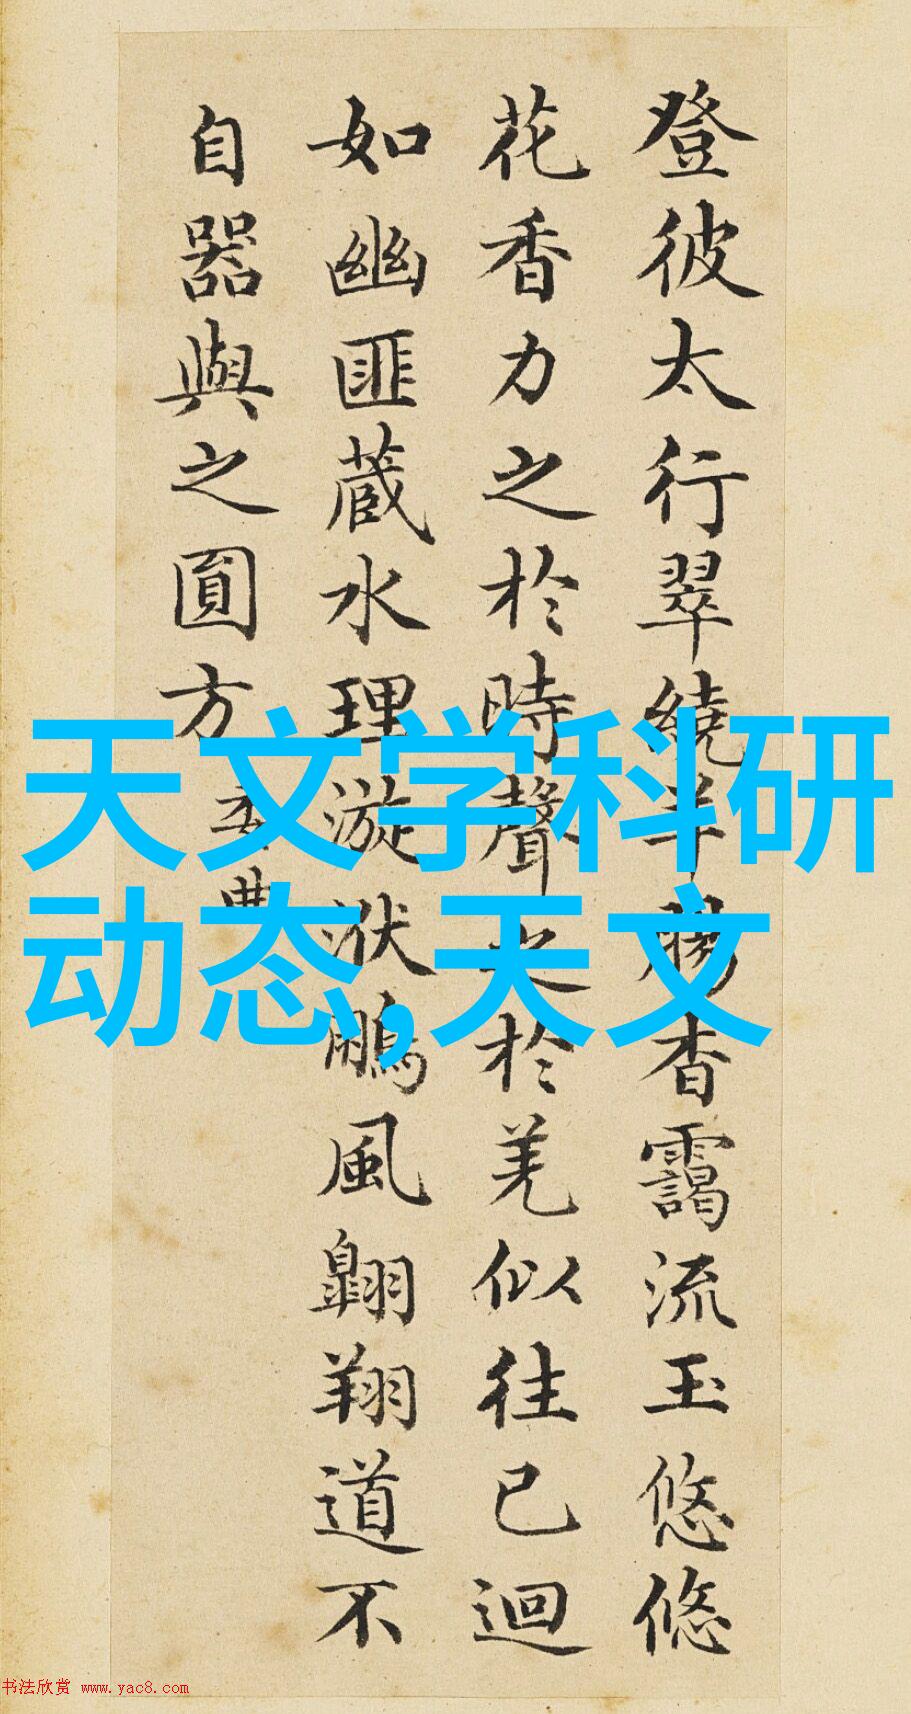 登彼太行翠繞羊腸杳靄流玉悠悠
花香力之於時聲之於羌似往已迴
如幽匪蔵水理漩洑鵬風翺翔道不
自器與之圓方
天文学科研
动态,天文
书法欣赏 www.yac8.com